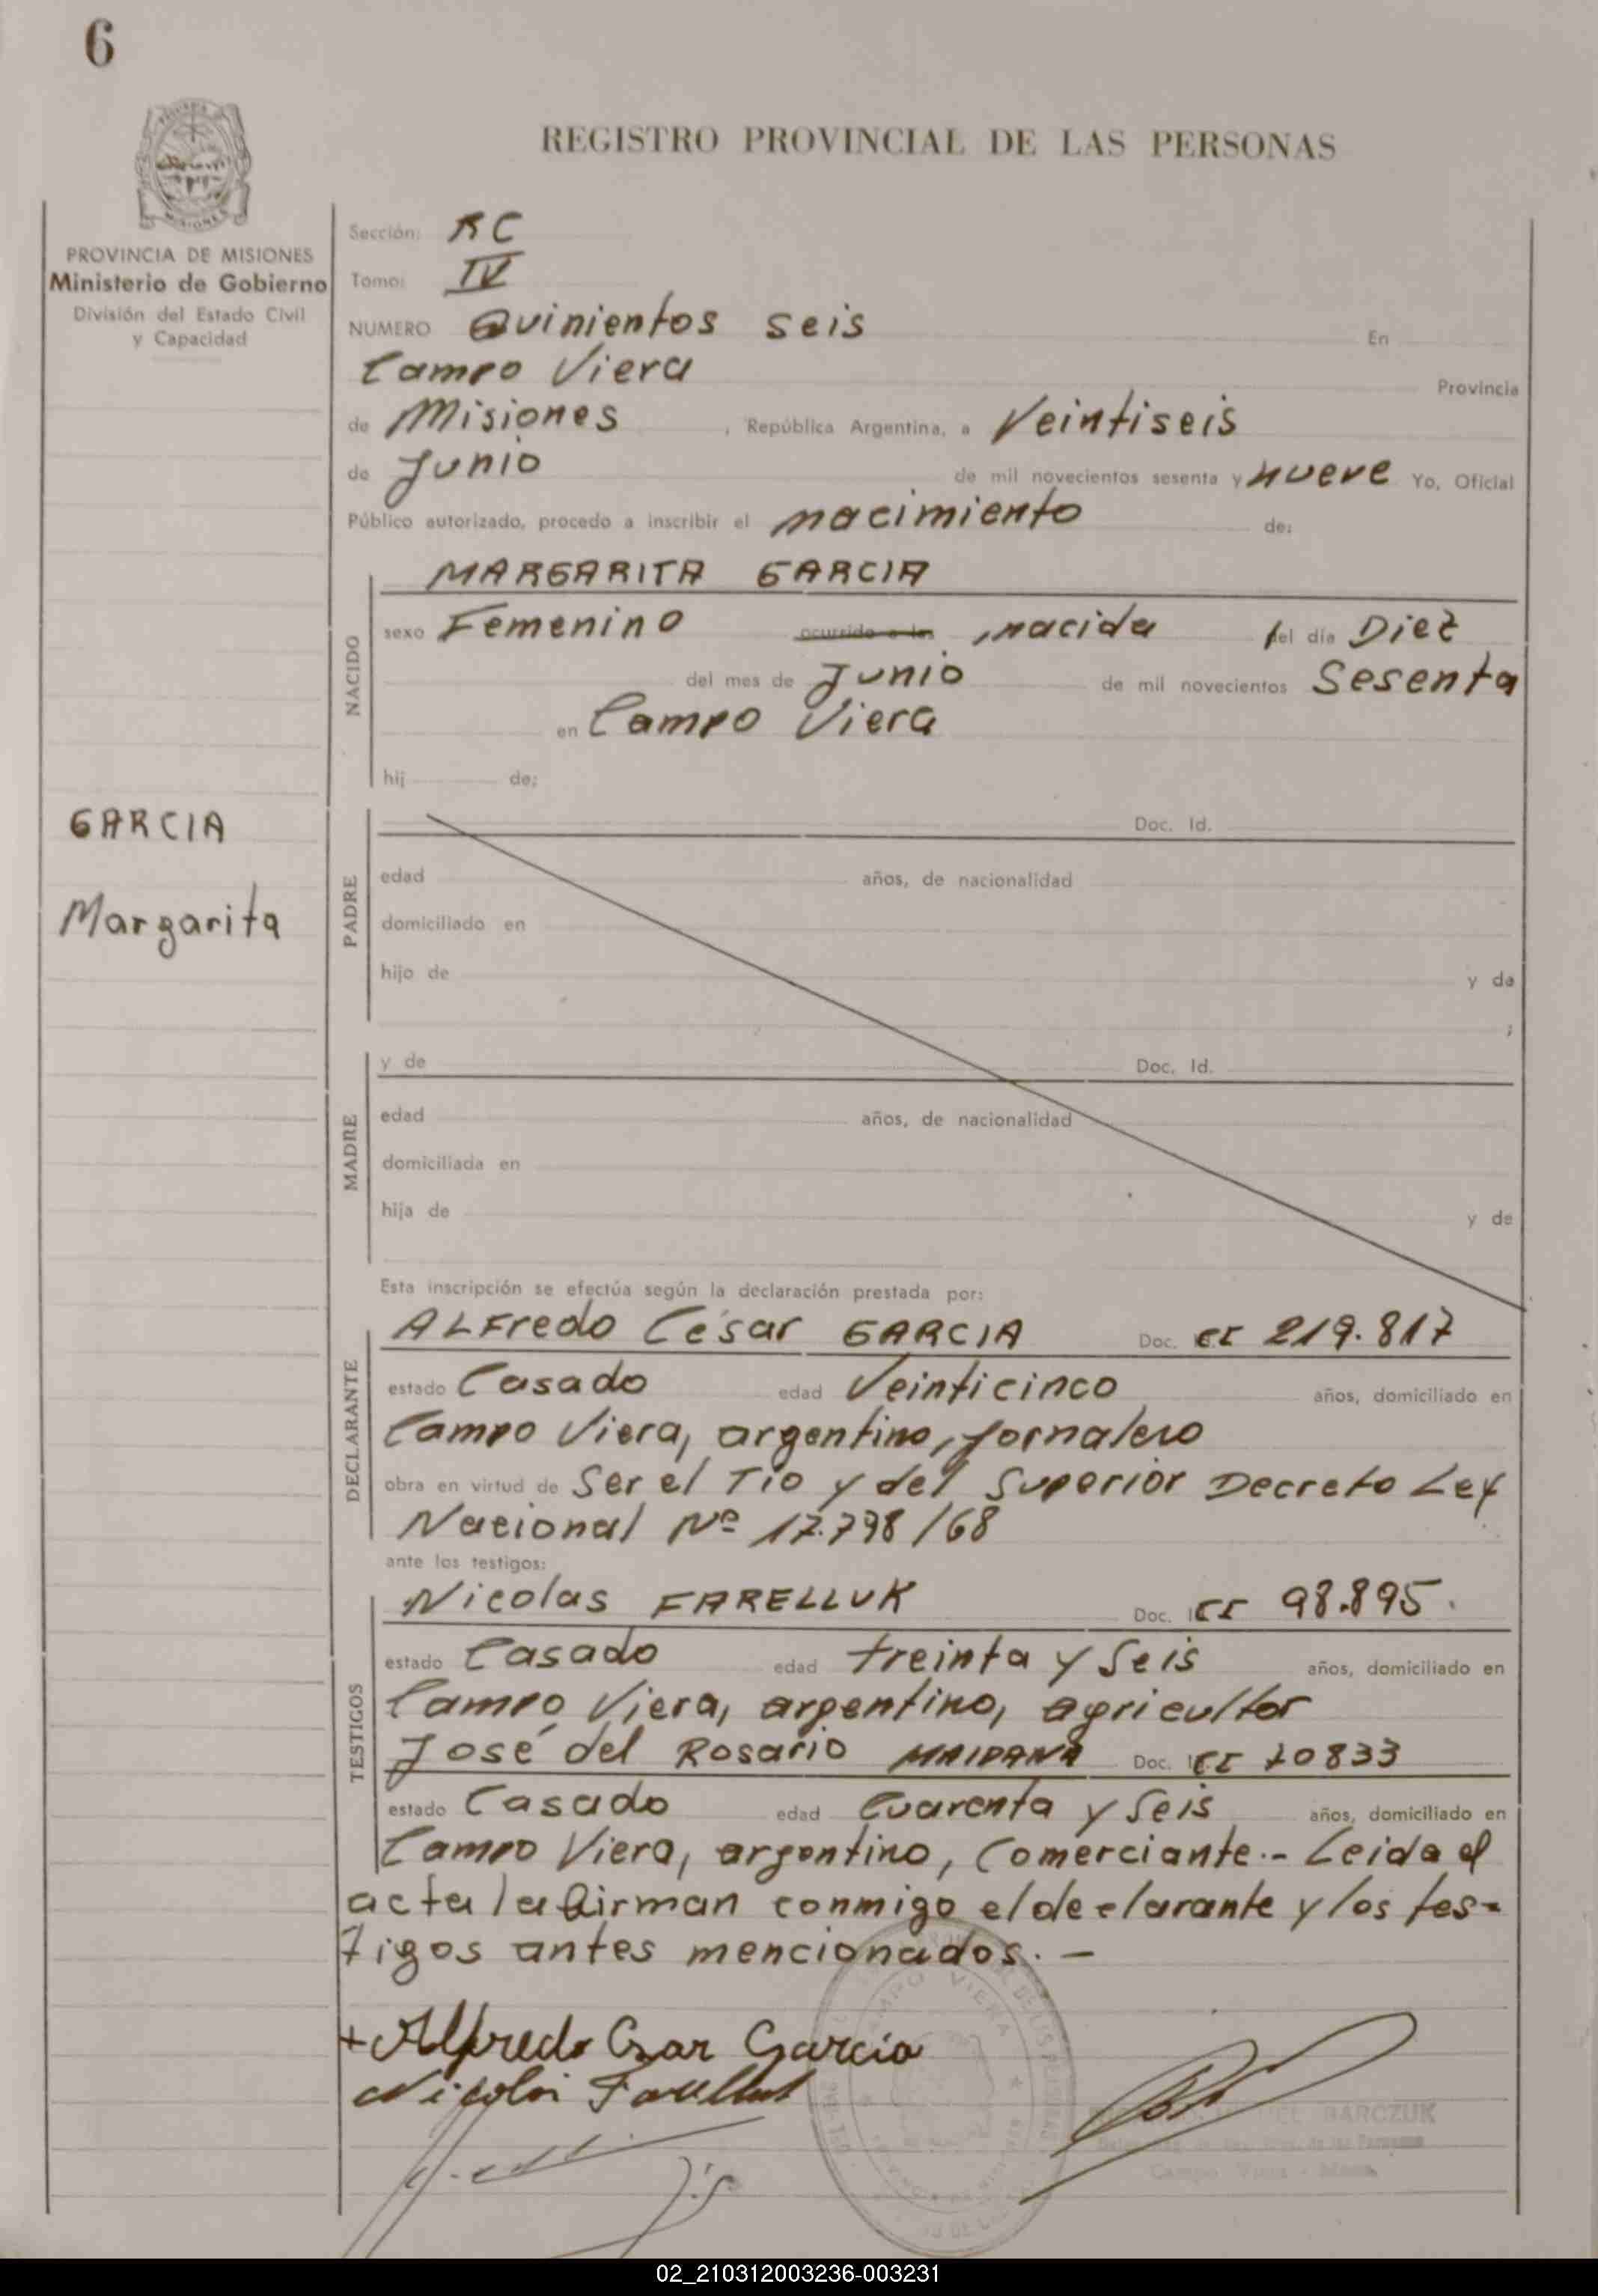 6
REGISTRO PROVINCIAL DE LAS PERSONAS
PROVINCIA DE MISIONES
Ministerio de Gobierno
División del Estado Civil
y Capacidad
Sección: RC
Tomo: IV
NUMERO Quinientos seis En
Campo Viera Provincia
de Misiones, República Argentina, a Veintiseis
de Junio de mil novecientos sesenta y nueve Yo, Oficial
Público autorizado, procedo a inscribir el nacimiento de:
NACIDO
MARGARITA GARCIA
sexo Femenino ocurrido a las, nacida del día Diez
del mes de Junio de mil novecientos Sesenta
en Campo Viera
hij de;
GARCIA
Margarita
PADRE
Doc. Id.
edad años, de nacionalidad
domiciliado en
hijo de y de
;
MADRE
y de Doc. Id.
edad años, de nacionalidad
domiciliada en
hija de y de
Esta inscripción se efectúa según la declaración prestada por:
DECLARANTE
ALFredo César GARCIA Doc. CI 219.817
estado Casado edad Veinticinco años, domiciliado en
Campo Viera, argentino, jornalero
obra en virtud de Ser el Tio y del Superior Decreto Ley
Nacional Nº 17.798/68
ante los testigos:
TESTIGOS
Nicolas FARELLUK Doc. CI 98.895.
estado Casado edad treinta y Seis años, domiciliado en
Campo Viera, argentino, agricultor
José del Rosario MAIDANA Doc. CI 10833
estado Casado edad Cuarenta y Seis años, domiciliado en
Campo Viera, argentino, Comerciante.- Leida el
acta la firman conmigo el declarante y los tes-
tigos antes mencionados. -
+ Alfredo Cesar Garcia
CAMPO VIERA
BARCZUK
Campo Viera - Mnes.
02_210312003236-003231